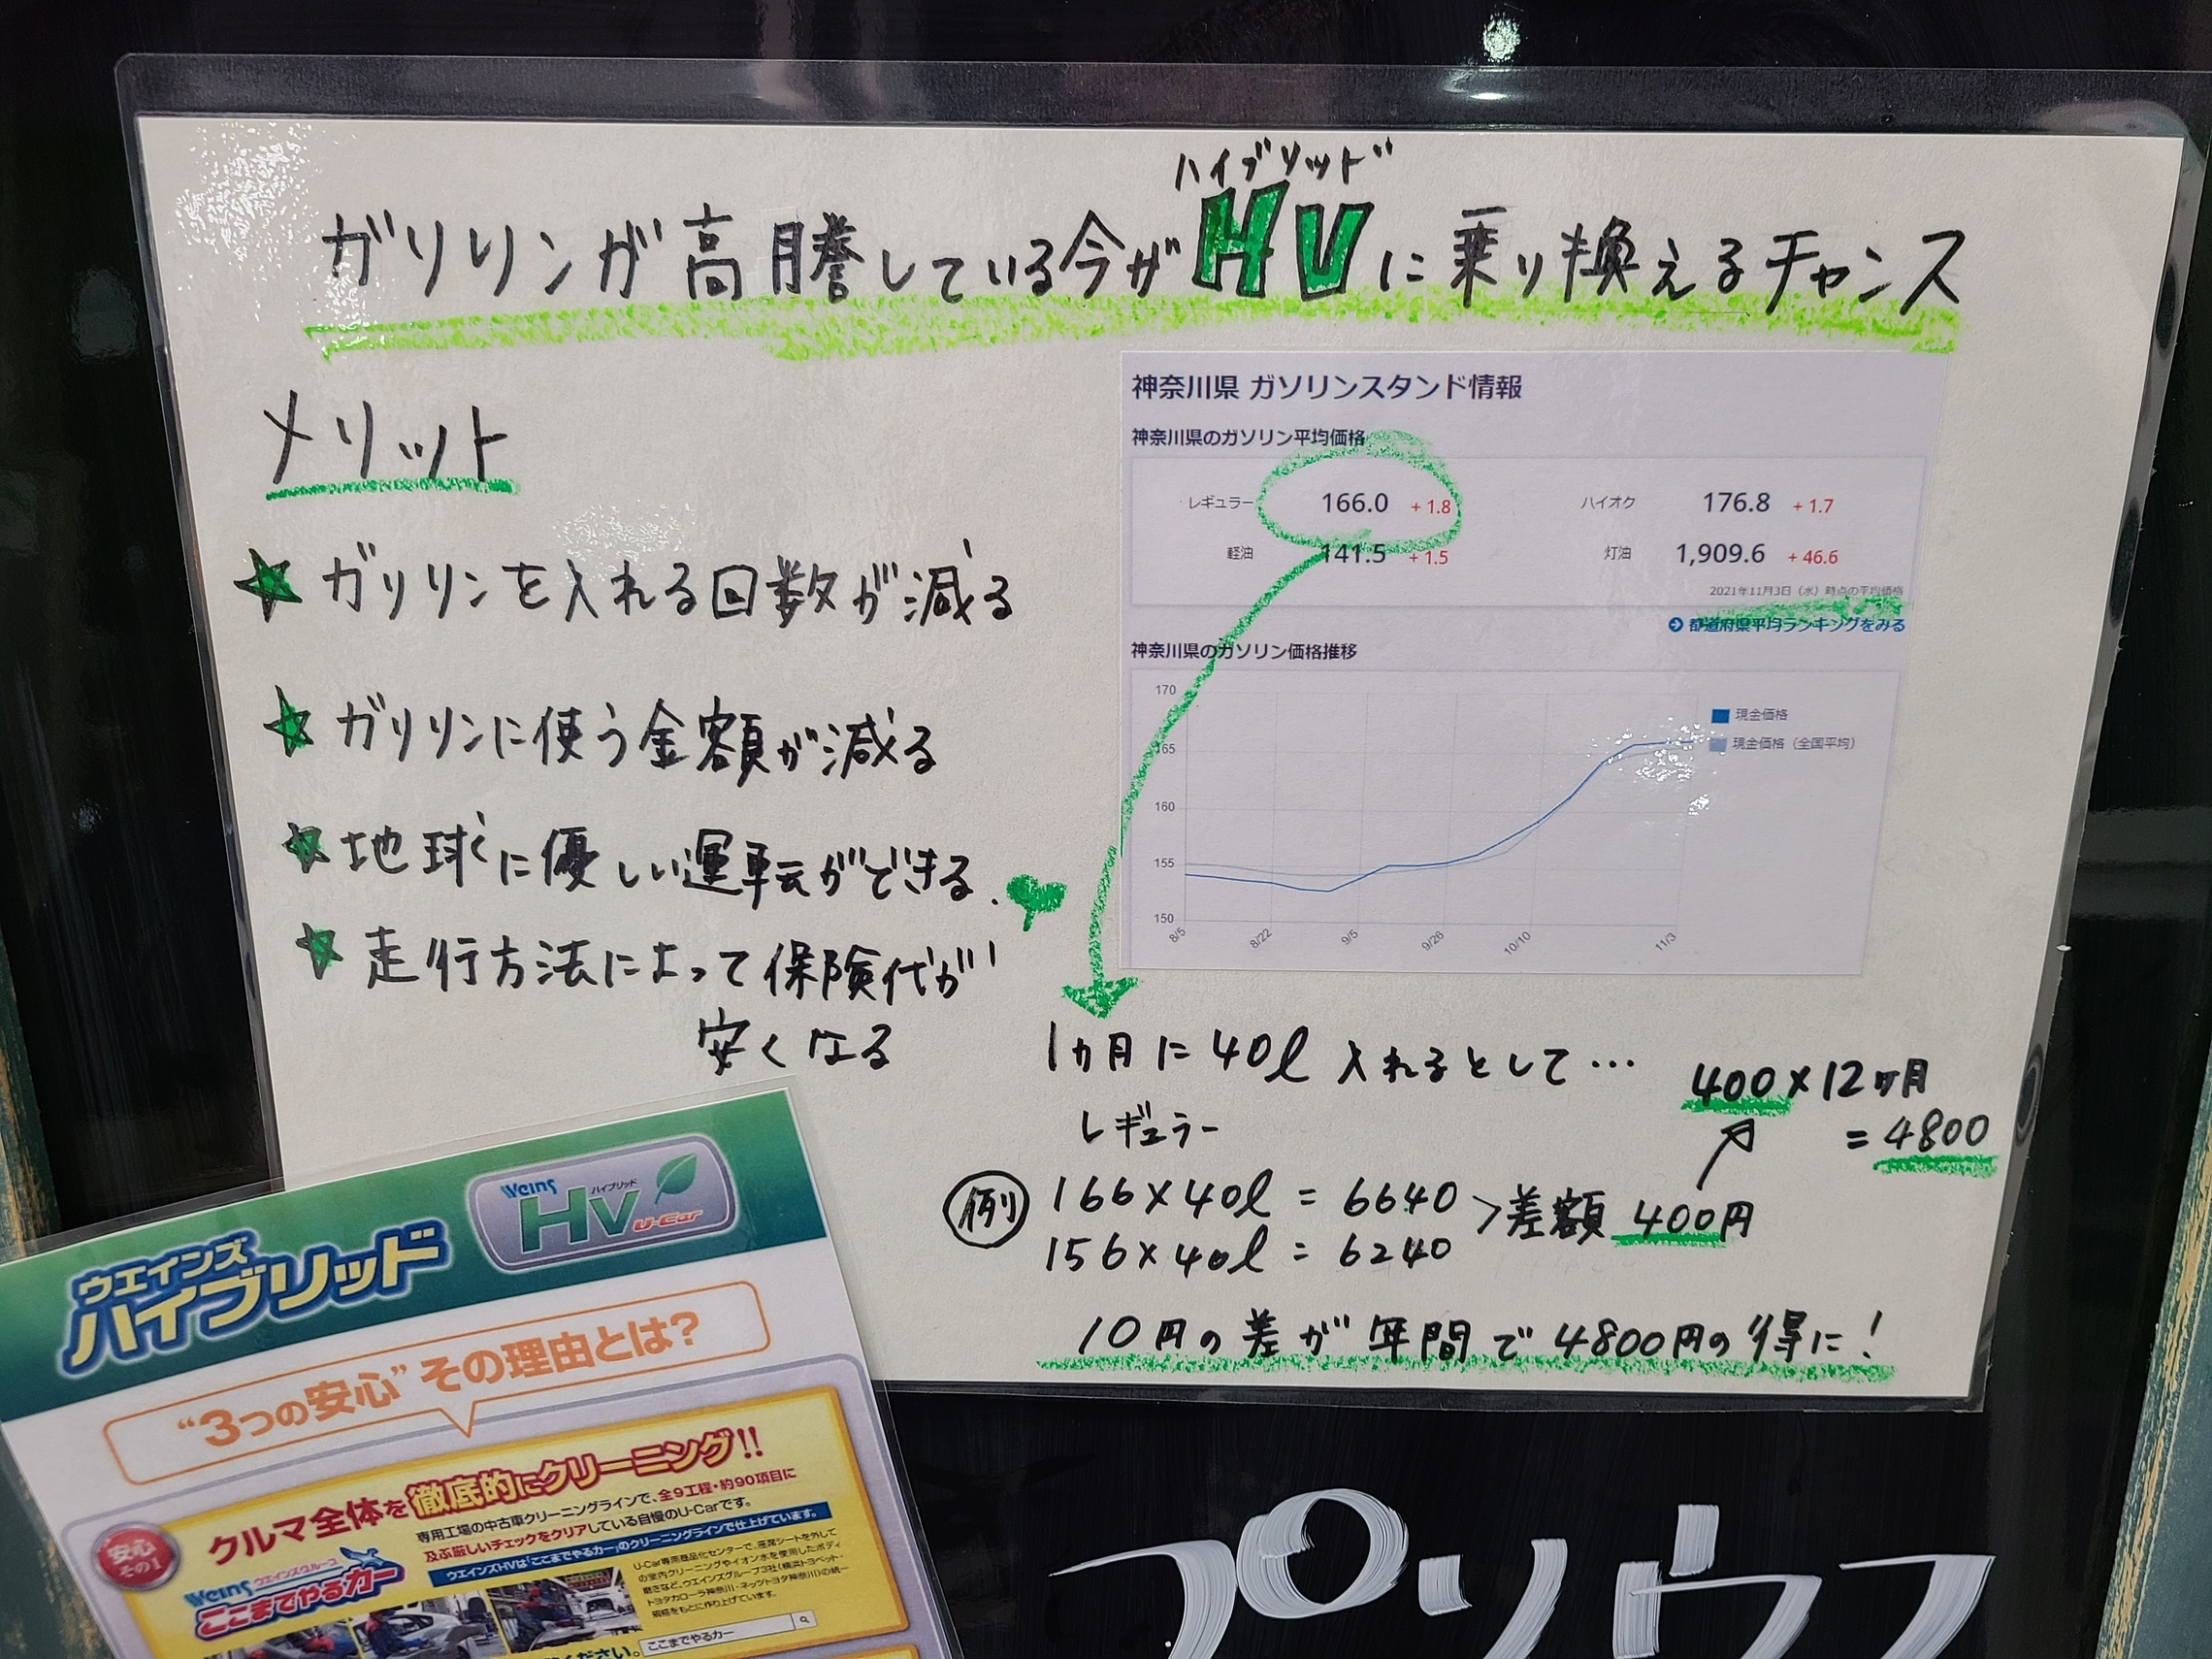 ハイブリッド
ガソリンが高騰している今がHVに乗り換えるチャンス
メリット
ガソリンを入れる回数が減る
ガソリンに使う金額が減る
地球に優しい運転ができる.
走行方法によって保険代が
安くなる
神奈川県 ガソリンスタンド情報
神奈川県のガソリン平均価格
レギュラー 166.0 +1.8 ハイオク 176.8 +1.7
軽油 141.5 +1.5 灯油 1,909.6 +46.6
2021年11月3日（水）時点の平均価格
都道府県平均ランキングをみる
神奈川県のガソリン価格推移
170
165
160
155
150
8/5 8/22 9/5 9/26 10/10 11/3
現金価格
現金価格（全国平均）
1ヵ月に40ℓ入れるとして…
レギュラー
400×12ヶ月
=4800
例 166×40ℓ=6640
156×40ℓ=6240
>差額 400円
10円の差が年間で4800円の得に!
ウエインズ
ハイブリッド
Weins ハイブリッド
HV U-Car
“3つの安心”その理由とは?
安心
その1
クルマ全体を徹底的にクリーニング!!
専用工場の中古車クリーニングラインで、全9工程・約90項目に
及ぶ厳しいチェックをクリアしている自慢のU-Carです。
ウエインズHVは「ここまでやるカー」のクリーニングラインで仕上げています。
Weins ウエインズグループ
ここまでやるカー
U-Car専用商品化センターで、座席シートを外して
の室内クリーニングやイオン水を使用したボディ
磨きなど、ウエインズグループ3社(横浜トヨペット・
トヨタカローラ神奈川・ネッツトヨタ神奈川)の統一
規格をもとに作り上げています。
ここまでやるカー
ください。